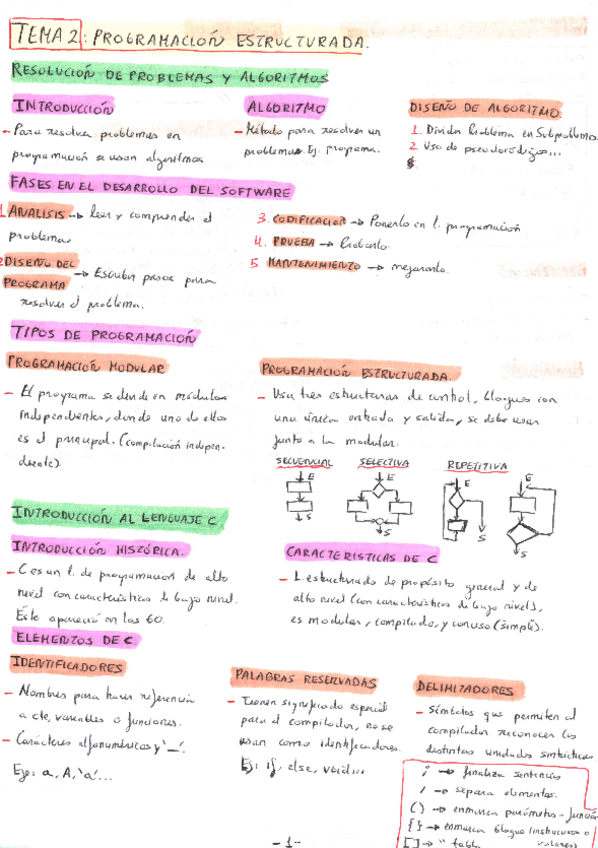 TEMA 2: PROGRAMACIÓN ESTRUCTURADA.
RESOLUCIÓN DE PROBLEMAS Y ALGORITMOS
INTRODUCCIÓN
- Para resolver problemas en
programación se usan algoritmos
ALGORITMO
- Método para resolver un
problema. Ej. programa.
DISEÑO DE ALGORITMO
1. Dividir Problema en Subproblemas
2. Uso de pseudocódigos...
FASES EN EL DESARROLLO DEL SOFTWARE
1. ANALISIS → leer y comprender el
problema
2. DISEÑO DEL
PROGRAMA → Escribir pasos para
resolver el problema.
3. CODIFICACION → Ponerlo en l. programación
4. PRUEBA → Probarlo.
5. MANTENIMIENTO → mejorarlo.
TIPOS DE PROGRAMACIÓN
PROGRAMACIÓN MODULAR
- El programa se divide en módulos
independientes, donde uno de ellos
es el principal. (compilación indepen-
diente).
PROGRAMACIÓN ESTRUCTURADA.
- Usa tres estructuras de control, bloques con
una única entrada y salida, se debe usar
junto a la modular.
SECUENCIAL SELECTIVA REPETITIVA
E E E E
S S S S
INTRODUCCIÓN AL LENGUAJE C
INTRODUCCIÓN HISTÓRICA.
- C es un l. de programacion de alto
nivel con características de bajo nivel.
Este apareció en los 60.
CARACTERISTICAS DE C
- L. estructurado de propósito general y de
alto nivel (con características de bajo nivel),
es modular, compilado, y conciso (simple).
ELEMENTOS DE C.
IDENTIFICADORES
- Nombres para hacer referencia
a cte, variables o funciones.
- Carácteres alfanuméricos y '_'.
Ejs: a, A, 'a'...
PALABRAS RESERVADAS
- Tienen significado especial
para el compilador, no se
usan como identificadores.
Ej: if, else, void...
DELIMITADORES
- Símbolos que permiten al
compilador reconocer las
distintas unidades sintácticas
; → finaliza sentencias
, → separa elementos.
( ) → enmarca parámetros-función
{ } → enmarca bloque (instrucciones o
valores)
[ ] → " tabla
- 1 -